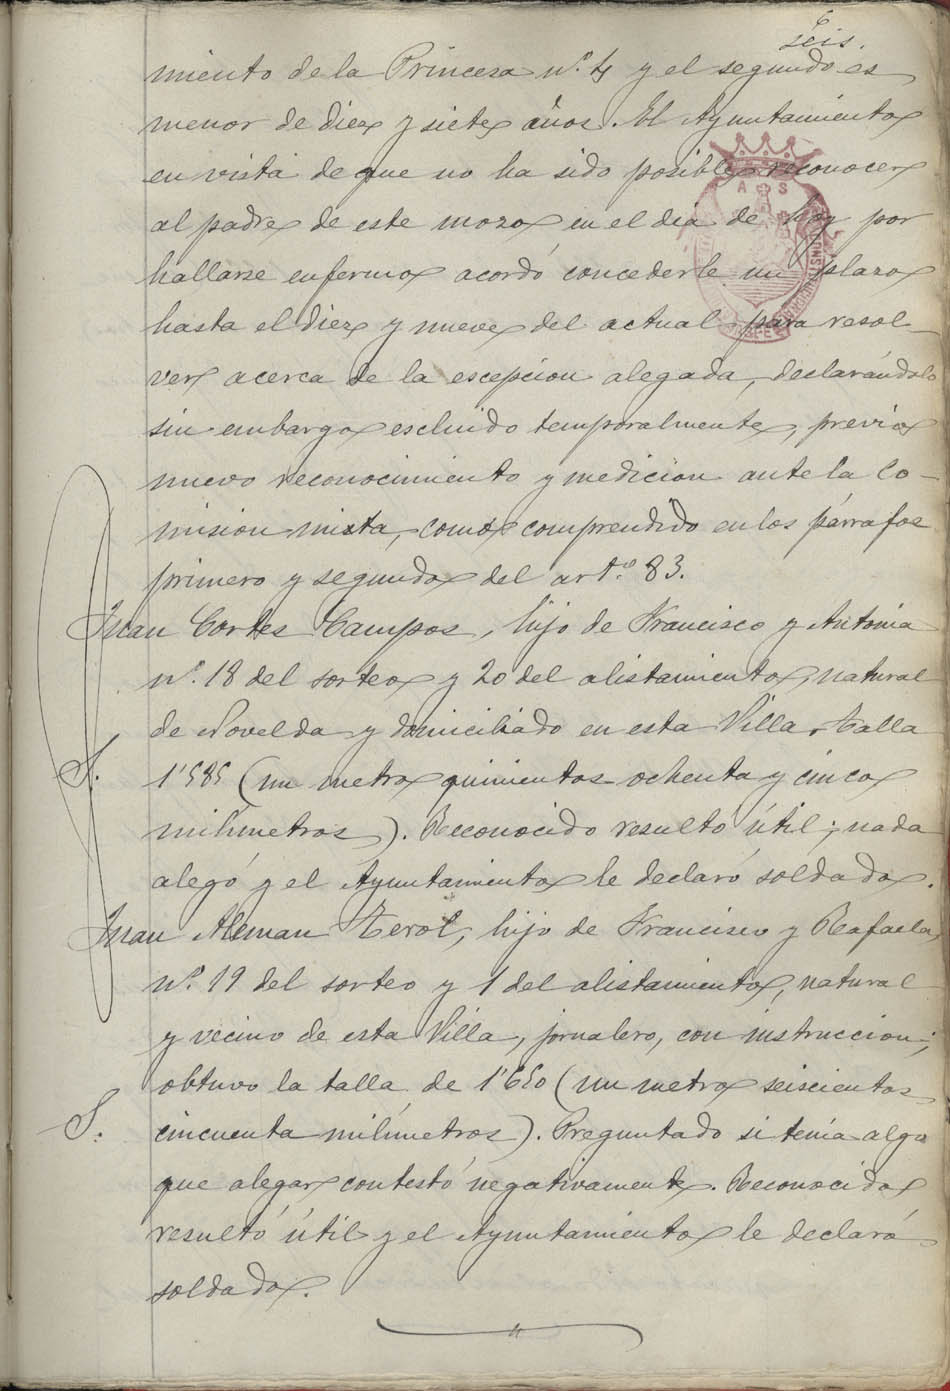 6
seis.
miento de la Princesa nº. 4 y el segundo es
menor de diez y siete años. El Ayuntamiento
en vista de que no ha sido posible reconocer
al padre de este mozo en el dia de hoy por
hallarse enfermo acordó concederle un plazo
hasta el diez y nueve del actual para resol-
ver acerca de la escepcion alegada, declarándolo
sin embargo escluido temporalmente, previo
nuevo reconocimiento y medicion ante la Co-
mision mixta, como comprendido en los párrafos
primero y segundo del artº. 83.
Juan Cortes Campos, hijo de Francisco y Antonia
nº. 18 del sorteo y 20 del alistamiento, natural
de Novelda y domiciliado en esta Villa, talla
S. 1'585 (un metro quinientos ochenta y cinco
milímetros). Reconocido resultó útil; nada
alegó y el Ayuntamiento le declaró soldado.
Juan Aleman Terol, hijo de Francisco y Rafaela,
nº. 19 del sorteo y 1 del alistamiento, natural
y vecino de esta Villa, jornalero, con instruccion;
obtuvo la talla de 1'650 (un metro seiscientos
S. cincuenta milímetros). Preguntado si tenia algo
que alegar contestó negativamente. Reconocido
resultó útil y el Ayuntamiento le declaró
soldado.